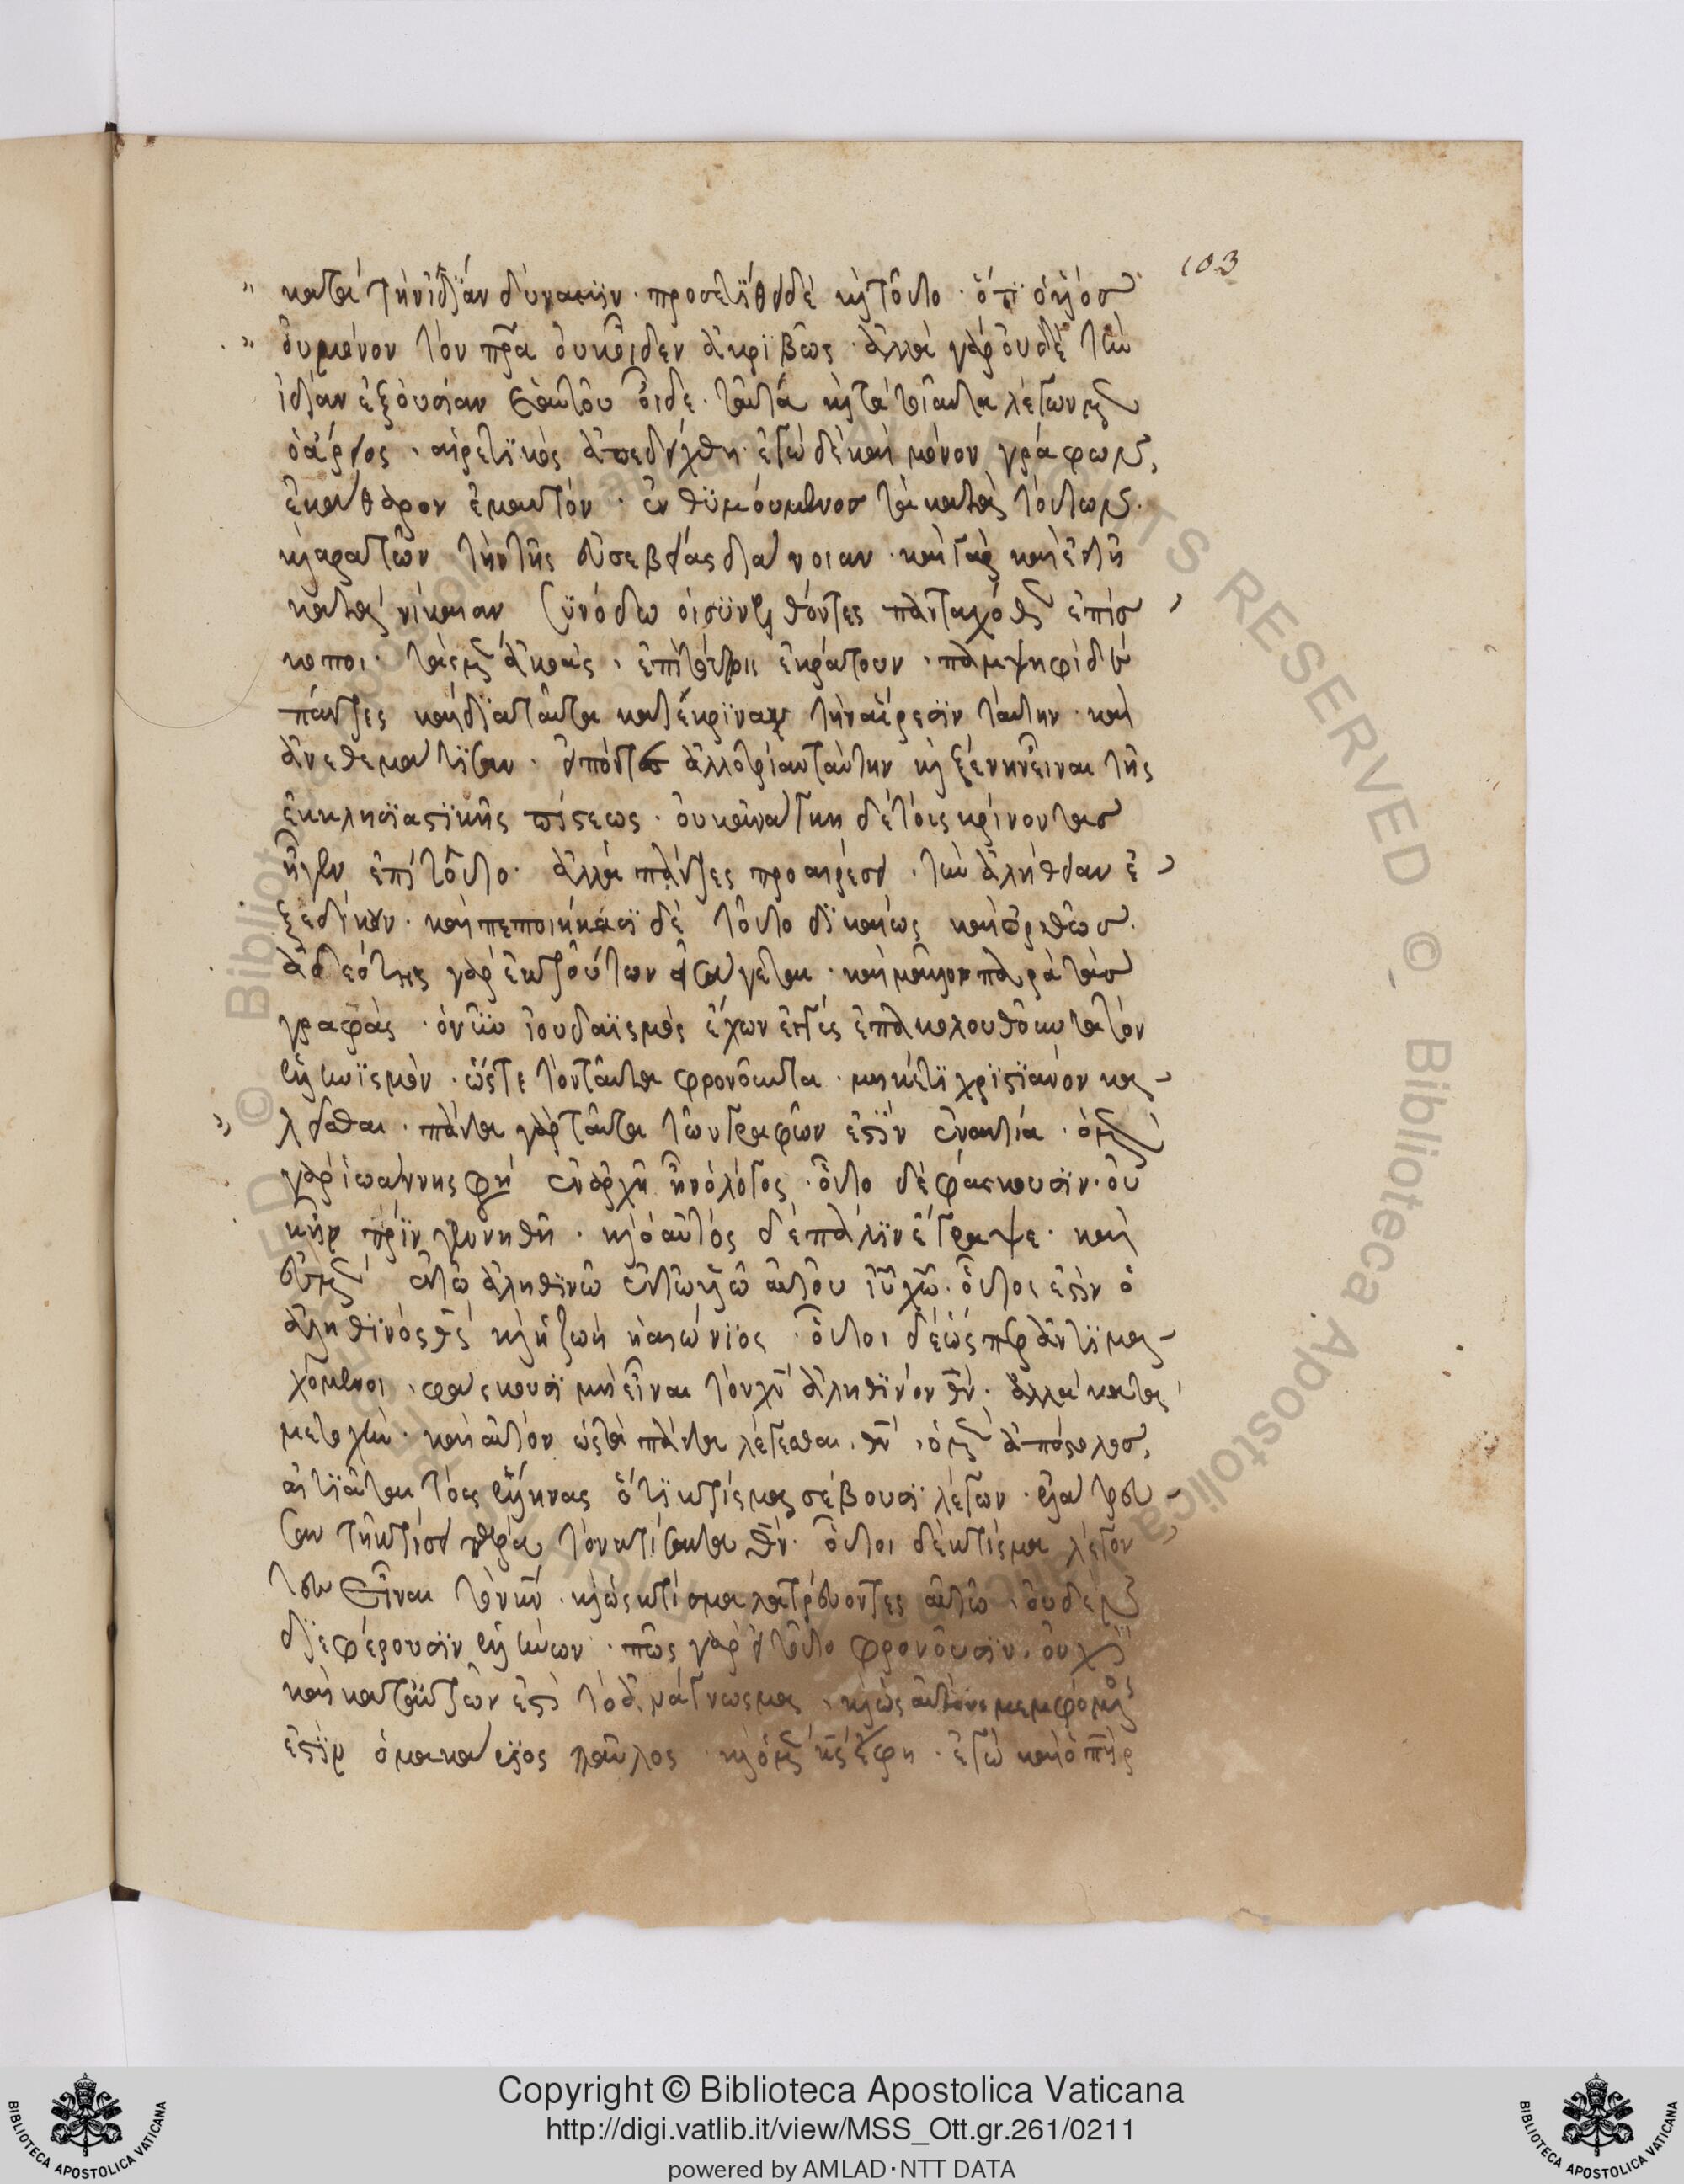 103
κατὰ τὴν ἰδίαν δύναμιν · προσετίθει δὲ κ τοῦτο · ὅτι ὁ υἱός
οὐ μόνον τὸν πρα οὐκ οἶδεν ἀκριβῶς · ἀλλὰ γὰρ οὐδὲ τὴν
ἰδίαν ἐξουσίαν ἑαυτοῦ οἶδε · ταῦτα κ τὰ τοιαῦτα λέγων
ὁ ἄρειος · αἱρετικὸς ἀπεδείχθη · ἐγὼ δὲ καὶ μόνον γράφων,
ἐκάθαρον ἐμαυτόν · ἐνθυμούμενος τὰ κατὰ τούτων ·
κ κρατῶν τὴν τῆς εὐσεβείας διάνοιαν · καὶ γὰρ καὶ ἐν τῇ
κατὰ νίκαιαν συνόδω οἱ συνελθόντες πανταχόθεν ἐπίσ
κοποι · τὰς μὲν ἀκοὰς · ἐπὶ τούτοις ἐκράτουν · παμψηφὶ δὲ
πάντες καὶ διὰ ταῦτα κατέκριναν τὴν αἵρεσιν ταύτην · καὶ
ἀνεθεμάτισαν · εἰπόντες ἀλλοτρίαν ταύτην κ ξένην εἶναι τῆς
ἐκκλησιαστικῆς πίστεως · οὐκ ἀνάγκη δὲ τοὺς κρίνοντας
ἦγεν ἐπὶ τοῦτο · ἀλλὰ πάντες προαιρέσει · τὴν ἀλήθειαν ἐ
ξεδίκουν · καὶ πεποιήκασι δὲ τοῦτο δικαίως καὶ ὀρθῶς ·
ἀθεότης γὰρ ἐκ τούτων εἰσάγεται · καὶ μᾶλλον παρὰ τὰς
γραφὰς · ὃν ἰουδαϊσμὸς ἔχων ἐγγὺς ἐπακολουθοῦντα τὸν
ἑλληνισμὸν · ὥστε τὸν ταῦτα φρονοῦντα · μηκέτι χριστιανὸν κα
λεῖσθαι · πάντα γὰρ ταῦτα τῶν γραφῶν ἐστὶν ἐναντία · ὁ μὲν
γὰρ ἰωάννης φη ἐν ἀρχῇ ἦν ὁ λόγος · οὗτοι δὲ φάσκουσιν · οὐ
κ ἦν πρὶν γεννηθῇ · κ ὁ αὐτὸς δὲ πάλιν ἔγραψε · καὶ
ἐσμὲν ἐν τῶ ἀληθινῶ ἐν τῶ υἱῶ αὐτοῦ ιυ χω · οὗτος ἐστὶν ὁ
ἀληθινὸς θς κ ἡ ζωὴ ἡ αἰώνιος · οὗτοι δὲ ὥσπερ ἀντιμα
χόμενοι · φάσκουσι μὴ εἶναι τὸν χν ἀληθινὸν θν · ἀλλὰ κατὰ
μετοχὴν · καὶ αὐτὸν ὡς τὰ πάντα λέγεσθαι · θν · ὁ μὲν ἀπόστολος,
αἰτιᾶται τοὺς ἕλληνας ὅτι κτίσμα σέβουσι λέγων · ἐλάτρευ
σαν τῇ κτίσει παρὰ τὸν κτίσαντα θν · οὗτοι δὲ κτίσμα λέγον
τες εἶναι τὸν κν · κ ὡς κτίσμα λατρεύοντες αὐτῶ · οὐδὲν
διαφέρουσιν ἑλλήνων · πῶς γὰρ εἰ τοῦτο φρονοῦσιν · οὐχὶ
καὶ κατ' αὐτῶν ἐστὶ τὸ ἀνάγνωσμα · κ ὡς αὐτοὺς μεμφόμενος
ἐστὶν ὁ μακάριος παῦλος · κ ὁ μὲν κς ἔφη · ἐγὼ καὶ ὁ πηρ
Copyright © Biblioteca Apostolica Vaticana
http://digi.vatlib.it/view/MSS_Ott.gr.261/0211
powered by AMLAD·NTT DATA
BIBLIOTECA APOSTOLICA VATICANA
BIBLIOTECA APOSTOLICA VATICANA